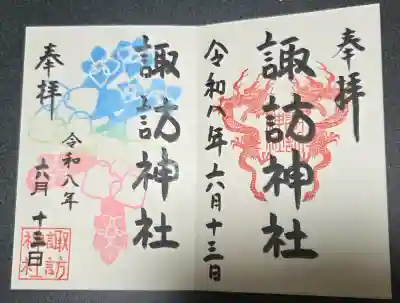 奉拝
諏訪神社
令和八年六月十三日
奉拝
諏訪神社
令和八年
六月十三日
諏訪
神社